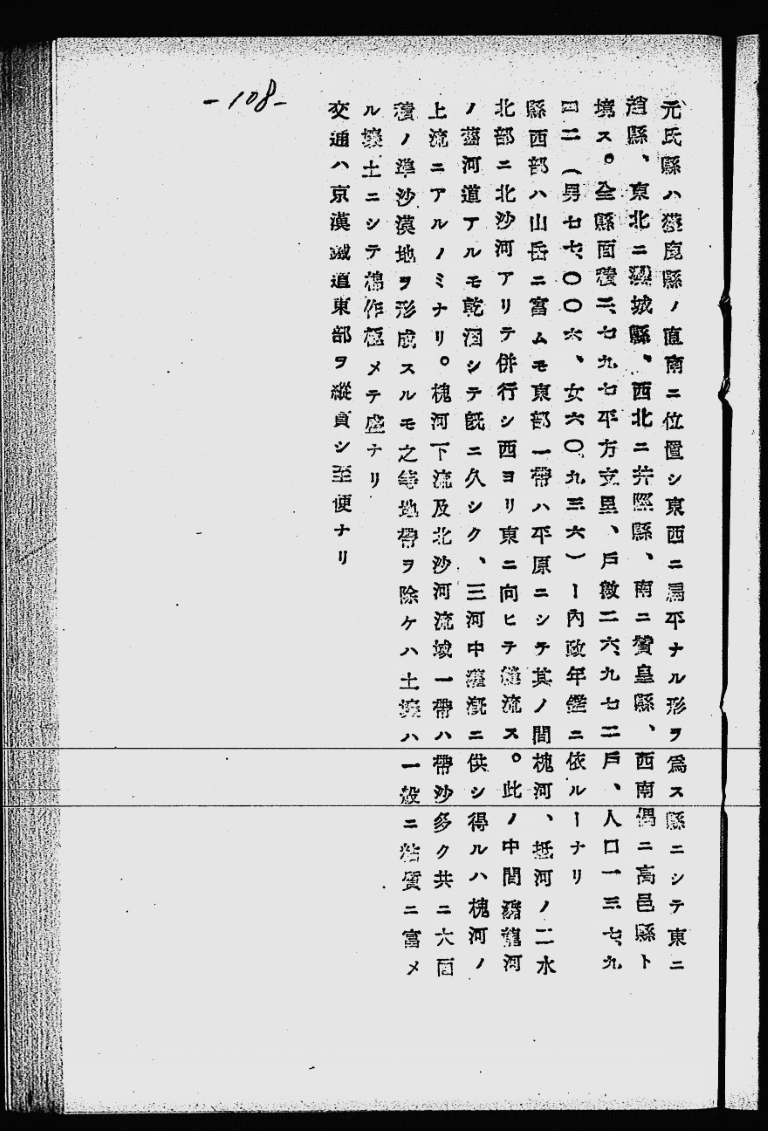 元氏縣ハ獲鹿縣ノ直南ニ位置シ東西ニ扁平ナル形ヲ爲ス縣ニシテ東ニ
趙縣、東北ニ欒城縣、西北ニ井陘縣、南ニ贊皇縣、西南偶ニ高邑縣ト
境ス。全縣面積二、七九七平方支里、戶數二六、九七二戶、人口一三七、九
四二（男七七、〇〇六、女六〇、九三六）ー內政年鑑ニ依ルーナリ
縣西部ハ山岳ニ富ムモ東部一帶ハ平原ニシテ其ノ間槐河、抵河ノ二水
北部ニ北沙河アリテ併行シ西ヨリ東ニ向ヒテ縱流ス。此ノ中間潴龍河
ノ舊河道アルモ乾涸シテ旣ニ久シク、三河中灌漑ニ供シ得ルハ槐河ノ
上流ニアルノミナリ。槐河下流及北沙河流域一帶ハ帶沙多ク共ニ大面
積ノ準沙漠地ヲ形成スルモ之等地帶ヲ除ケハ土壤ハ一般ニ粘質ニ富メ
ル壤土ニシテ棉作極メテ盛ナリ
交通ハ京漢鐵道東部ヲ縱貫シ至便ナリ
-108-